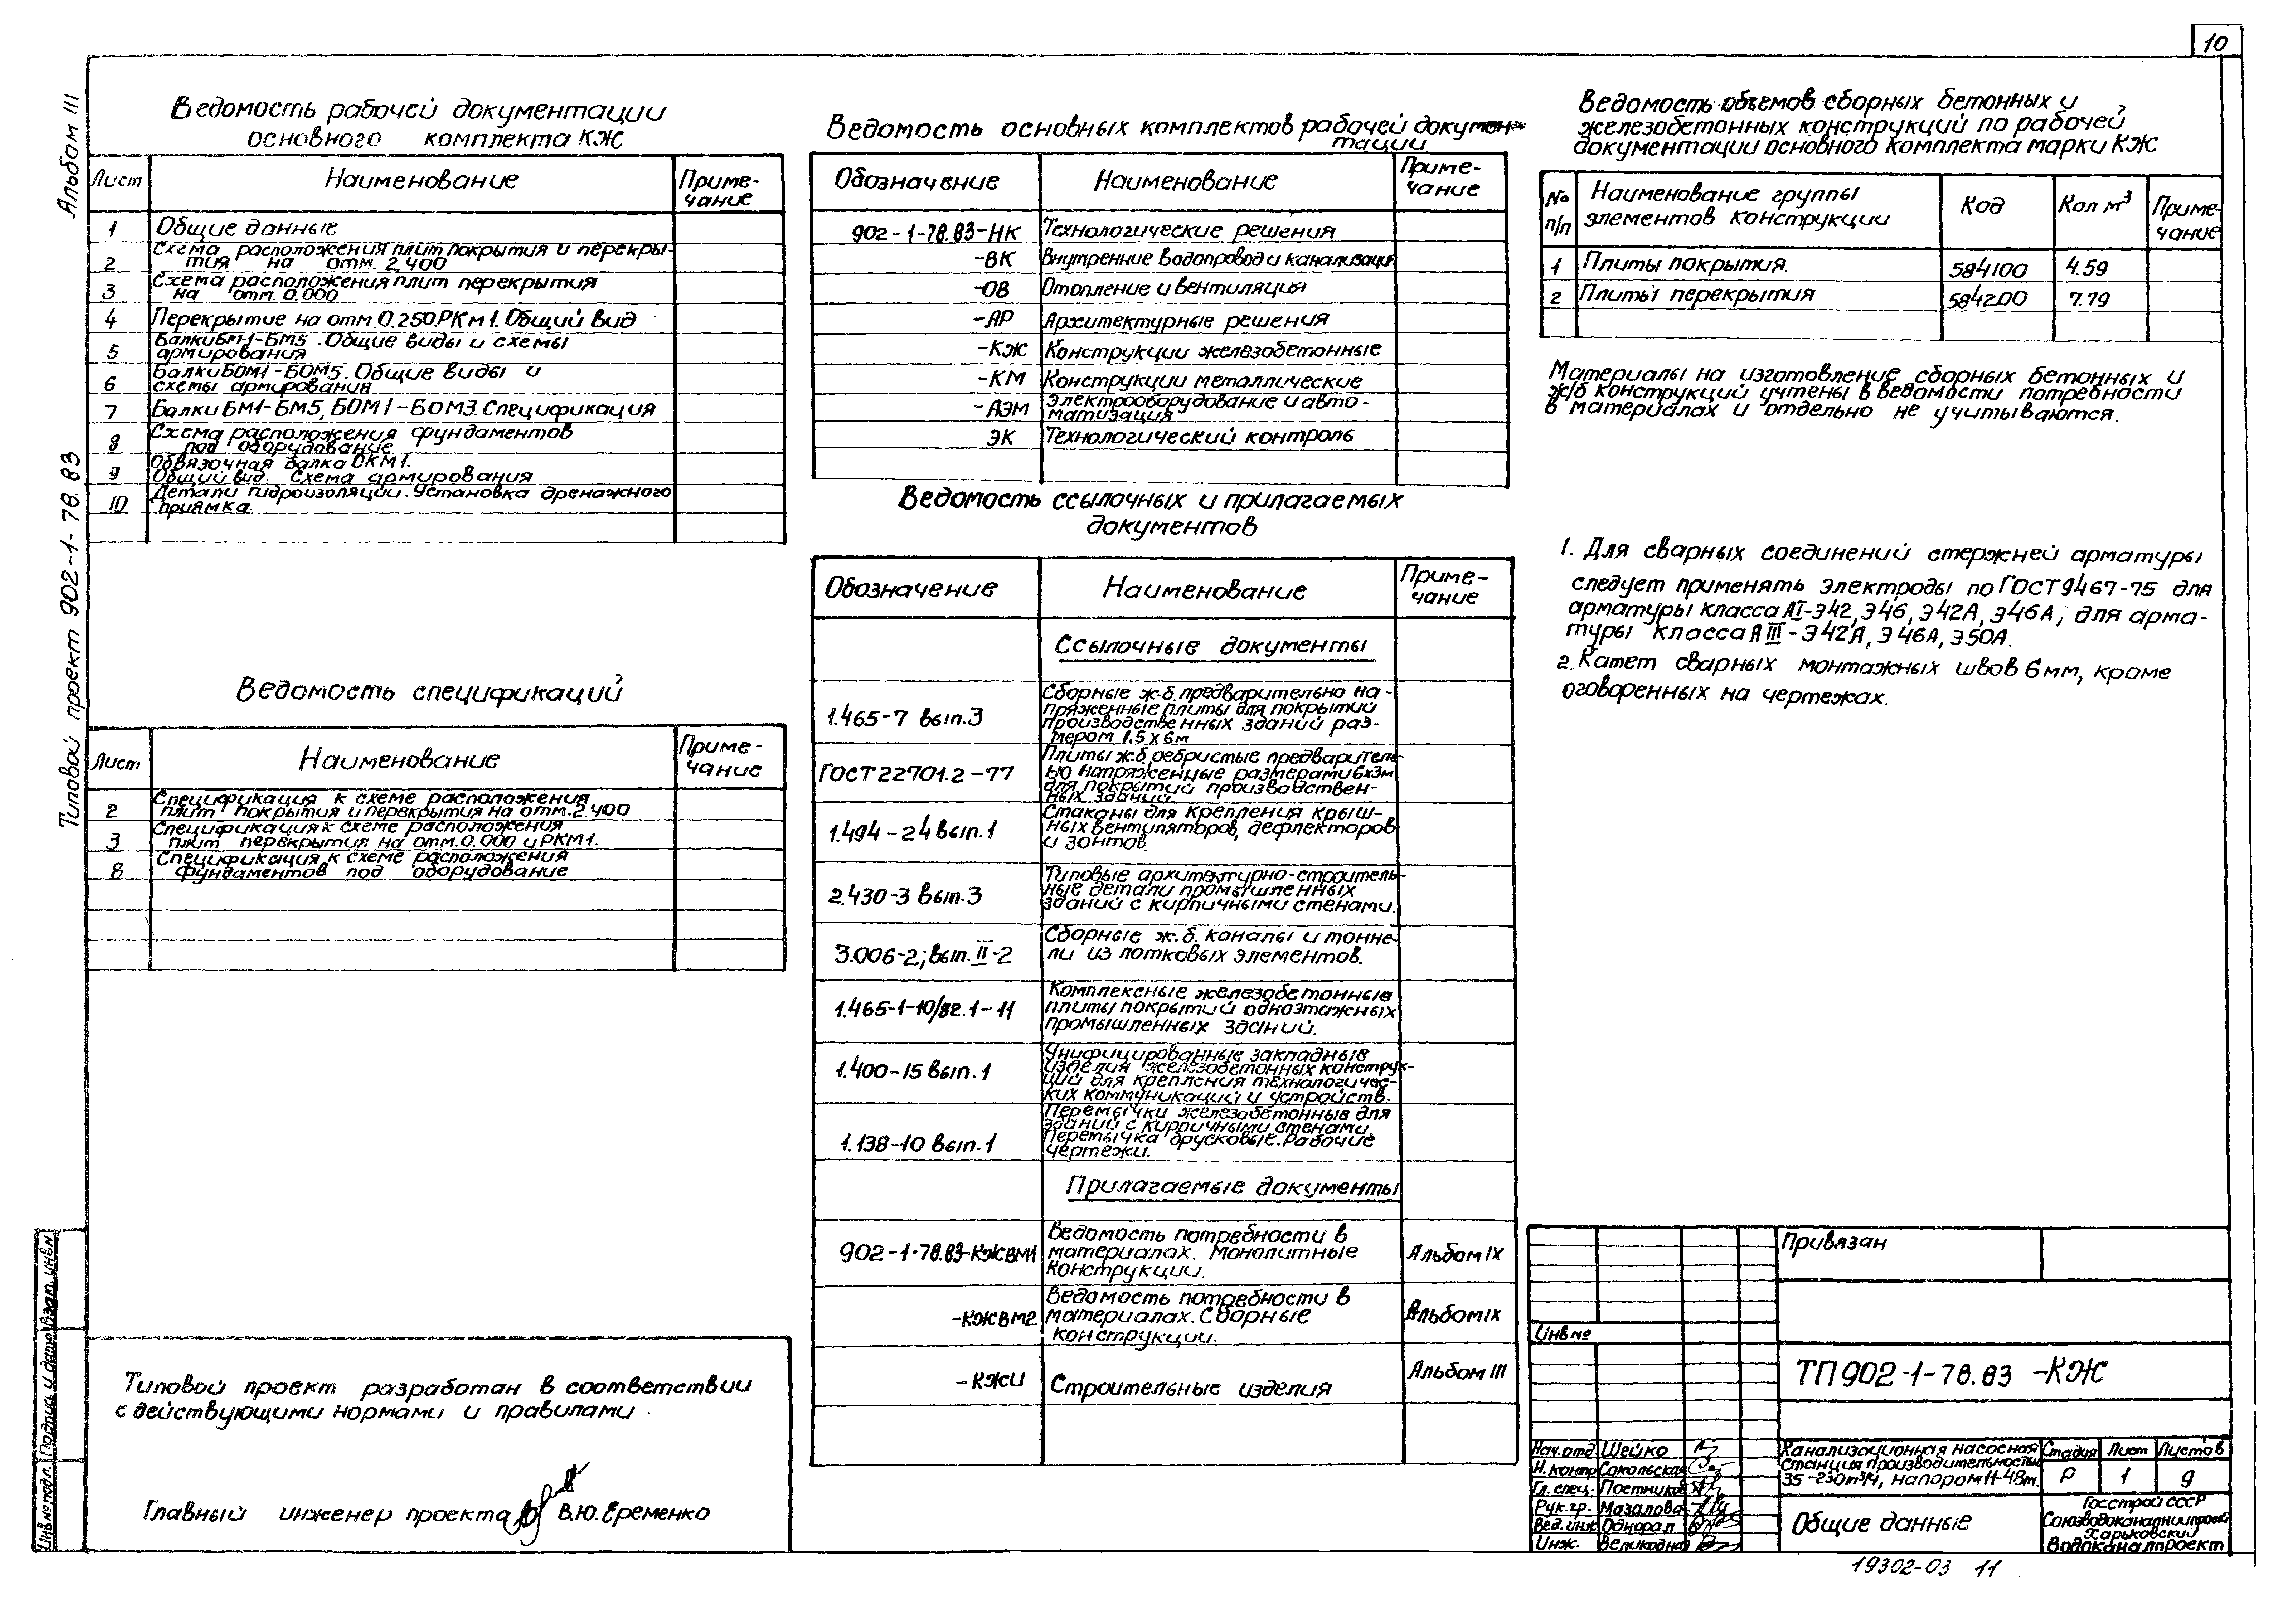 10
Альбом III
Типовой проект 902-1-78.83
Ведомость рабочей документации
основного комплекта КЖ
Лист Наименование Приме-
чание
1 Общие данные
2 Схема расположения плит покрытия и перекры-
тия на отм. 2.400
3 Схема расположения плит перекрытия
на отм. 0.000
4 Перекрытие на отм. 0.250 РКм1. Общий вид
5 Балки Бм1-Бм5. Общие виды и схемы
армирования
6 Балки БОМ1-БОМ5. Общие виды и
схемы армирования
7 Балки БМ1-БМ5, БОМ1-БОМ3. Спецификация
8 Схема расположения фундаментов
под оборудование
9 Обвязочная балка ОКМ1.
Общий вид. Схема армирования
10 Детали гидроизоляции. Установка дренажного
приямка.
Ведомость спецификаций
Лист Наименование Приме-
чание
2 Спецификация к схеме расположения
плит покрытия и перекрытия на отм. 2.400
3 Спецификация к схеме расположения
плит перекрытия на отм. 0.000 и РКМ1.
8 Спецификация к схеме расположения
фундаментов под оборудование
Типовой проект разработан в соответствии
с действующими нормами и правилами.
Главный инженер проекта В.Ю. Еременко
Инв № подл. Подпись и дата Взам. инв. №
Ведомость основных комплектов рабочей докумен-
тации
Обозначение Наименование Приме-
чание
902-1-78.83-НК Технологические решения
-ВК Внутренние водопровод и канализация
-ОВ Отопление и вентиляция
-АР Архитектурные решения
-КЖ Конструкции железобетонные
-КМ Конструкции металлические
-АЭМ Электрооборудование и авто-
матизация
ЭК Технологический контроль
Ведомость ссылочных и прилагаемых
документов
Обозначение Наименование Приме-
чание
Ссылочные документы
1.465-7 вып.3 Сборные ж.б. предварительно на-
пряженные плиты для покрытий
производственных зданий раз-
мером 1.5х6м
ГОСТ 22701.2-77 Плиты ж.б. ребристые предваритель-
но напряженные размерами 6х3м
для покрытий производствен-
ных зданий.
1.494-24 вып.1 Стаканы для крепления крыш-
ных вентиляторов, дефлекторов
и зонтов.
2.430-3 вып.3 Типовые архитектурно-строитель-
ные детали промышленных
зданий с кирпичными стенами.
3.006-2; вып. II-2 Сборные ж.б. каналы и тонне-
ли из лотковых элементов.
1.465-1-10/82.1-11 Комплексные железобетонные
плиты покрытий одноэтажных
промышленных зданий.
1.400-15 вып.1 Унифицированные закладные
изделия железобетонных конструк-
ций для крепления технологичес-
ких коммуникаций и устройств.
1.138-10 вып.1 Перемычки железобетонные для
зданий с кирпичными стенами.
Перемычка брусковые. Рабочие
чертежи.
Прилагаемые документы
902-1-78.83-КЖВМ1 Ведомость потребности в
материалах. Монолитные
конструкции. Альбом IX
-КЖВМ2 Ведомость потребности в
материалах. Сборные
конструкции. Альбом IX
-КЖИ Строительные изделия Альбом III
Ведомость объемов сборных бетонных и
железобетонных конструкций по рабочей
документации основного комплекта марки КЖ
№
п/п Наименование группы
элементов конструкции Код Кол м³ Приме-
чание
1 Плиты покрытия. 584100 4.59
2 Плиты перекрытия 584200 7.79
Материалы на изготовление сборных бетонных и
ж/б конструкций учтены в ведомости потребности
в материалах и отдельно не учитываются.
1. Для сварных соединений стержней арматуры
следует применять электроды по ГОСТ 9467-75 для
арматуры класса АI-Э42, Э46, Э42А, Э46А; для арма-
туры класса АIII-Э42А, Э46А, Э50А.
2. Катет сварных монтажных швов 6мм, кроме
оговоренных на чертежах.
Привязан
Инв №
ТП 902-1-78.83 -КЖ
Нач.отд. Шейко
Н.контр Сокольская
Гл.спец. Постников
Рук.гр. Мазалова
Вед.инж Однорал
Инж. Великодная
Канализационная насосная
станция производительностью
35-230 м³/ч, напором 11-48м.
Стадия Лист Листов
Р 1 9
Общие данные
Госстрой СССР
Союзводоканалниипроект
Харьковский
Водоканалпроект
19302-03 11